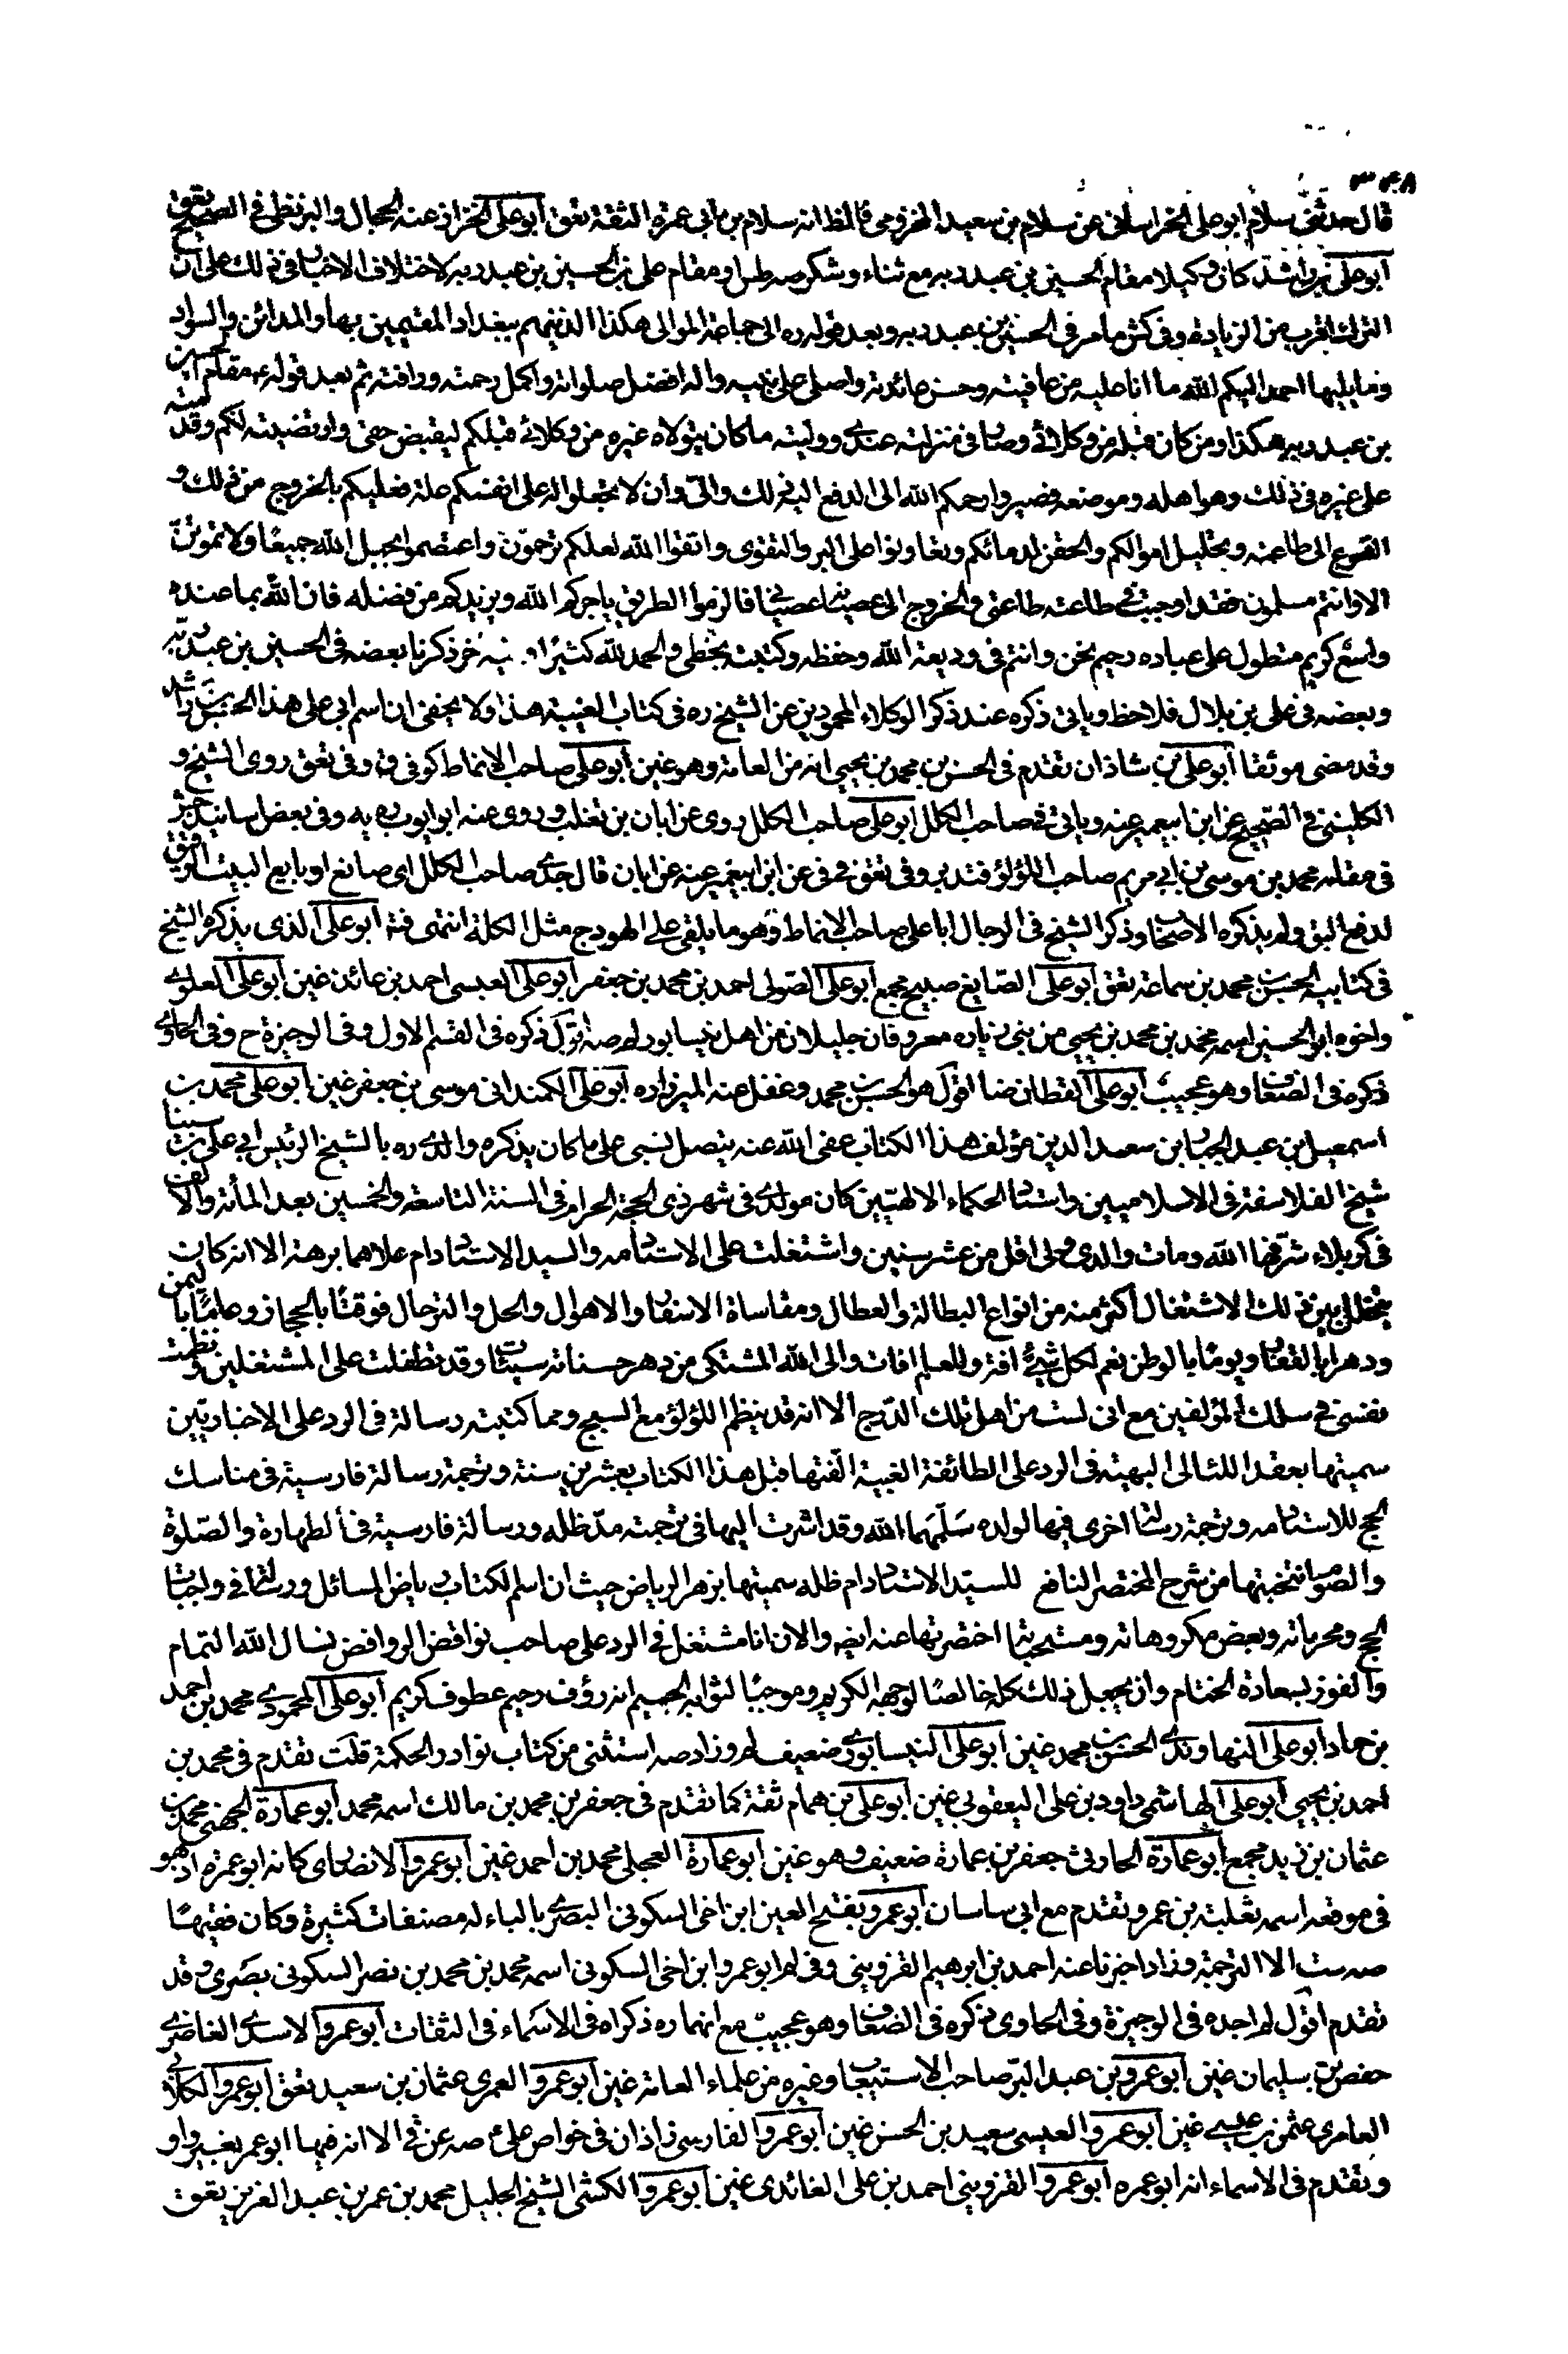 ٣۴٨
قال حدثنى سلام ابو على الخراسانى عن سلام بن سعيد المخزومى فالظ انه سلام بن ابى عمرة الثقة تعق أبو على الخزاز عنه الحجال والبزنطى فى الصحيح تعق
أبو على بن راشد كان وكيلا مقام الحسين بن عبد ربه مع ثناء وشكر صه طس او مقام على بن الحسين بن عبد ربه لاختلاف الاخبار فى ذلك على ان
الترك اقرب من الزيادة وفى كش ما مر فى الحسين بن عبد ربه وبعد قوله ره الى جماعة الموالى هكذا الذينهم ببغداد المقيمين بها والمدائن والسواد
وما يليها احمد اليكم الله ما انا عليه من عافيته وحسن عائدته واصلى على نبيه واله افضل صلواته واكمل رحمته ورافته ثم بعد قوله ع مقام الحسين
بن عبد ربه هكذا ومن كان قبله من وكلائى وصار فى منزلته عندى ووليته ما كان يتولاه غيره من وكلائى قبلكم ليقبض حقى وارتضيته لكم وقدمته
على غيره فى ذلك وهو اهله وموضعه فصيروا رحمكم الله الى الدفع اليه ذلك والىّ وان لا تجعلوا له على انفسكم علة فعليكم بالخروج من ذلك و
التسرع الى طاعته وبتحليل اموالكم والحقن لدمائكم وتعاونوا على البر والتقوى واتقوا الله لعلكم ترحمون واعتصموا بحبل الله جميعًا ولا تموتنّ
الا وانتم مسلمون فقد اوجبت فى طاعته طاعتى والخروج الى عصيانه عصيانى فالزموا الطريق ياجركم الله ويزيدكم من فضله فان الله بما عنده
واسع كريم متطول على عباده رحيم نحن وانتم فى وديعة الله وحفظه وكتبت بخطى والحمد لله كثيرًا وفيه اخر ذكرنا بعضه فى الحسين بن عبد ربه
وبعضه فى على بن بلال فلاحظ وياتى ذكره عند ذكر الوكلاء المحمودين عن الشيخ ره فى كتاب الغيبة هذا ولا يخفى ان اسم ابى على هذا الحسن بن راشد
وقد مضى موثقا أبو على بن شاذان تقدم فى الحسن بن محمد بن يحيى انه من العامة وهو غير أبو على صاحب الانماط كوفى ق وفى تعق روى الشيخ و
الكلينى فى الصحيح عن ابن ابيعمير عنه وياتى فى صاحب الكلل أبو على صاحب الكلل روى عن ابان بن تغلب وروى عنه ابو ايوب ره يه وفى بعض اسانيد
فى مقامه محمد بن موسى بن ابى مريم صاحب اللؤلؤ فتدبر وفى تعق فى عن ابن ابيعمير عنه عن ابان قال جدى صاحب الكلل اى صانع او بايع البيت الرقيق
لدفع البق ولم يذكره الاصحاب وذكر الشيخ فى الرجال ابا على صاحب الانماط وهو ما يلقى على الهودج مثل الكلة انتهى فتأ أبو على الذى يذكره الشيخ
فى كتابيه الحسن بن محمد بن سماعة تعق أبو على الصايغ صبيح مجمع أبو على الصولى احمد بن محمد بن جعفر أبو على العبسى احمد بن عائذ غير أبو على العلوى
واخوه ابو الحسين اسمه محمد بن محمد بن يحيى من بنى زباره معروفان جليلان من اهل نيسابور لم صه اقول ذكره فى القسم الاول وفى الوجيزة ح وفى الحاوى
ذكره فى الضعاف وهو عجيب أبو على القطان ضا اقول هو الحسن بن محمد وغفل عنه الميرزا ره أبو على الكمندانى موسى بن جعفر غير أبو على محمد بن
اسمعيل بن عبد الجبار بن سعد الدين مؤلف هذا الكتاب عفى الله عنه يتصل نسبى على ما كان يذكره والدى ره بالشيخ الرئيس ابى على بن سينا
شيخ الفلاسفة فى الاسلاميين واستاد الحكماء الالهيّين كان مولدى فى شهر ذى الحجة الحرام فى السنة التاسعة والخمسين بعد المأئة والالف
فى كربلاء شرّفها الله ومات والدى ولى اقل من عشر سنين واشتغلت على الاستاد مد والسيد الاستاد دام علاهما برهة الا انه كان
يتخلل بين ذلك الاشتغال اكثر منه من انواع البطالة والعطال ومقاساة الاسفار والاهوال والحل والترحال فوقتًا بالحجاز وعامًا باليمن
ودهرا بالقفار ويومًا بالوطن نعم لكل شئ افة وللعلم افات والى الله المشتكى من دهر حسناته سيئات وقد تطفلت على المشتغلين ونظمت
نفسى فى سلك المؤلفين مع انى لست من اهل تلك الدّرج الا انه قد ينظم اللؤلؤ مع السبج ومما كتبته رسالة فى الرد على الاخباريّين
سميتها بعقد اللئالى البهية فى الرد على الطائفة الغبية الّفتها قبل هذا الكتاب بعشرين سنة وترجمة رسالة فارسية فى مناسك
الحج للاستاد مد وترجمة رسالة اخرى فيها لولده سَلَّمَهما الله وقد اشرت اليها فى ترجمته مدّ ظله ورسالة فارسية فى الطهارة والصّلوة
والصوم انتخبتها من شرح المختصر النافع للسيّد الاستاد دام ظله سميتها بزهر الرياض حيث ان اسلم لكتاب رياض المسائل ورسالة فى واجبات
الحج ومحرماته وبعض مكروهاته ومستحباته اختصرتها عنه ايضا والان انا مشتغل فى الرد على صاحب نواقض الروافض نسال الله التمام
والفوز بسعادة الختام وان يجعل ذلك كله خالصًا لوجهه الكريم وموجبًا لثوابه الجسيم انه رؤف رحيم عطوف كريم أبو على المحمودى محمد بن احمد
بن حماد أبو على النهاوندى الحسن بن محمد غير أبو على النيسابورى ضعيف لم وزاد صه استثنى من كتاب نوادر الحكمة قلت تقدم فى محمد بن
احمد بن يحيى أبو على الهاشمى داود بن على اليعقوبى غير أبو على بن همام ثقة كما تقدم فى جعفر بن محمد بن مالك اسمه محمد أبو عمارة الجهنى محمد بن
عثمان بن زيد مجمع أبو عمارة الحارثى جعفر بن عمارة ضعيف وهو غير أبو عمارة العجلى محمد بن احمد غير أبو عمرو الانصارى كانه ابو عمرة اذ هو
فى موقعه اسمه ثعلبة بن عمرو تقدم مع ابى ساسان أبو عمرو بفتح العين ابن اخى السكونى البصرى بالباء له مصنفات كثيرة وكان فقيهًا
صه ست الا الترجمة وزاد اخبرنا عنه احمد بن ابرهيم القزوينى وفى لم ابو عمرو ابن اخى السكونى اسمه محمد بن محمد بن نصر السكونى بصرى وقد
تقدم اقول لم اجده فى الوجيزة وفى الحاوى ذكره فى الضعاف وهو عجيب مع انهما ره ذكراه فى الاسماء فى الثقات أبو عمرو الاسدى الغاضرى
حفص بن سليمان غير أبو عمرو بن عبد البرّ صاحب الاستيعاب وغيره من علماء العامة غير أبو عمرو العمرى عثمان بن سعيد تعق أبو عمرو الكلابى
العامرى عثمن بن عيسى غير أبو عمرو العبسى سعيد بن الحسن غير أبو عمرو الفارسى زاذان فى خواص على ع صه عن قى الا ان فيها ابو عمر بغير واو
وتقدم فى الاسماء انه ابو عمره أبو عمرو القزوينى احمد بن على الفائدى غير أبو عمرو الكشى الشيخ الجليل محمد بن عمر بن عبد العزيز تعق